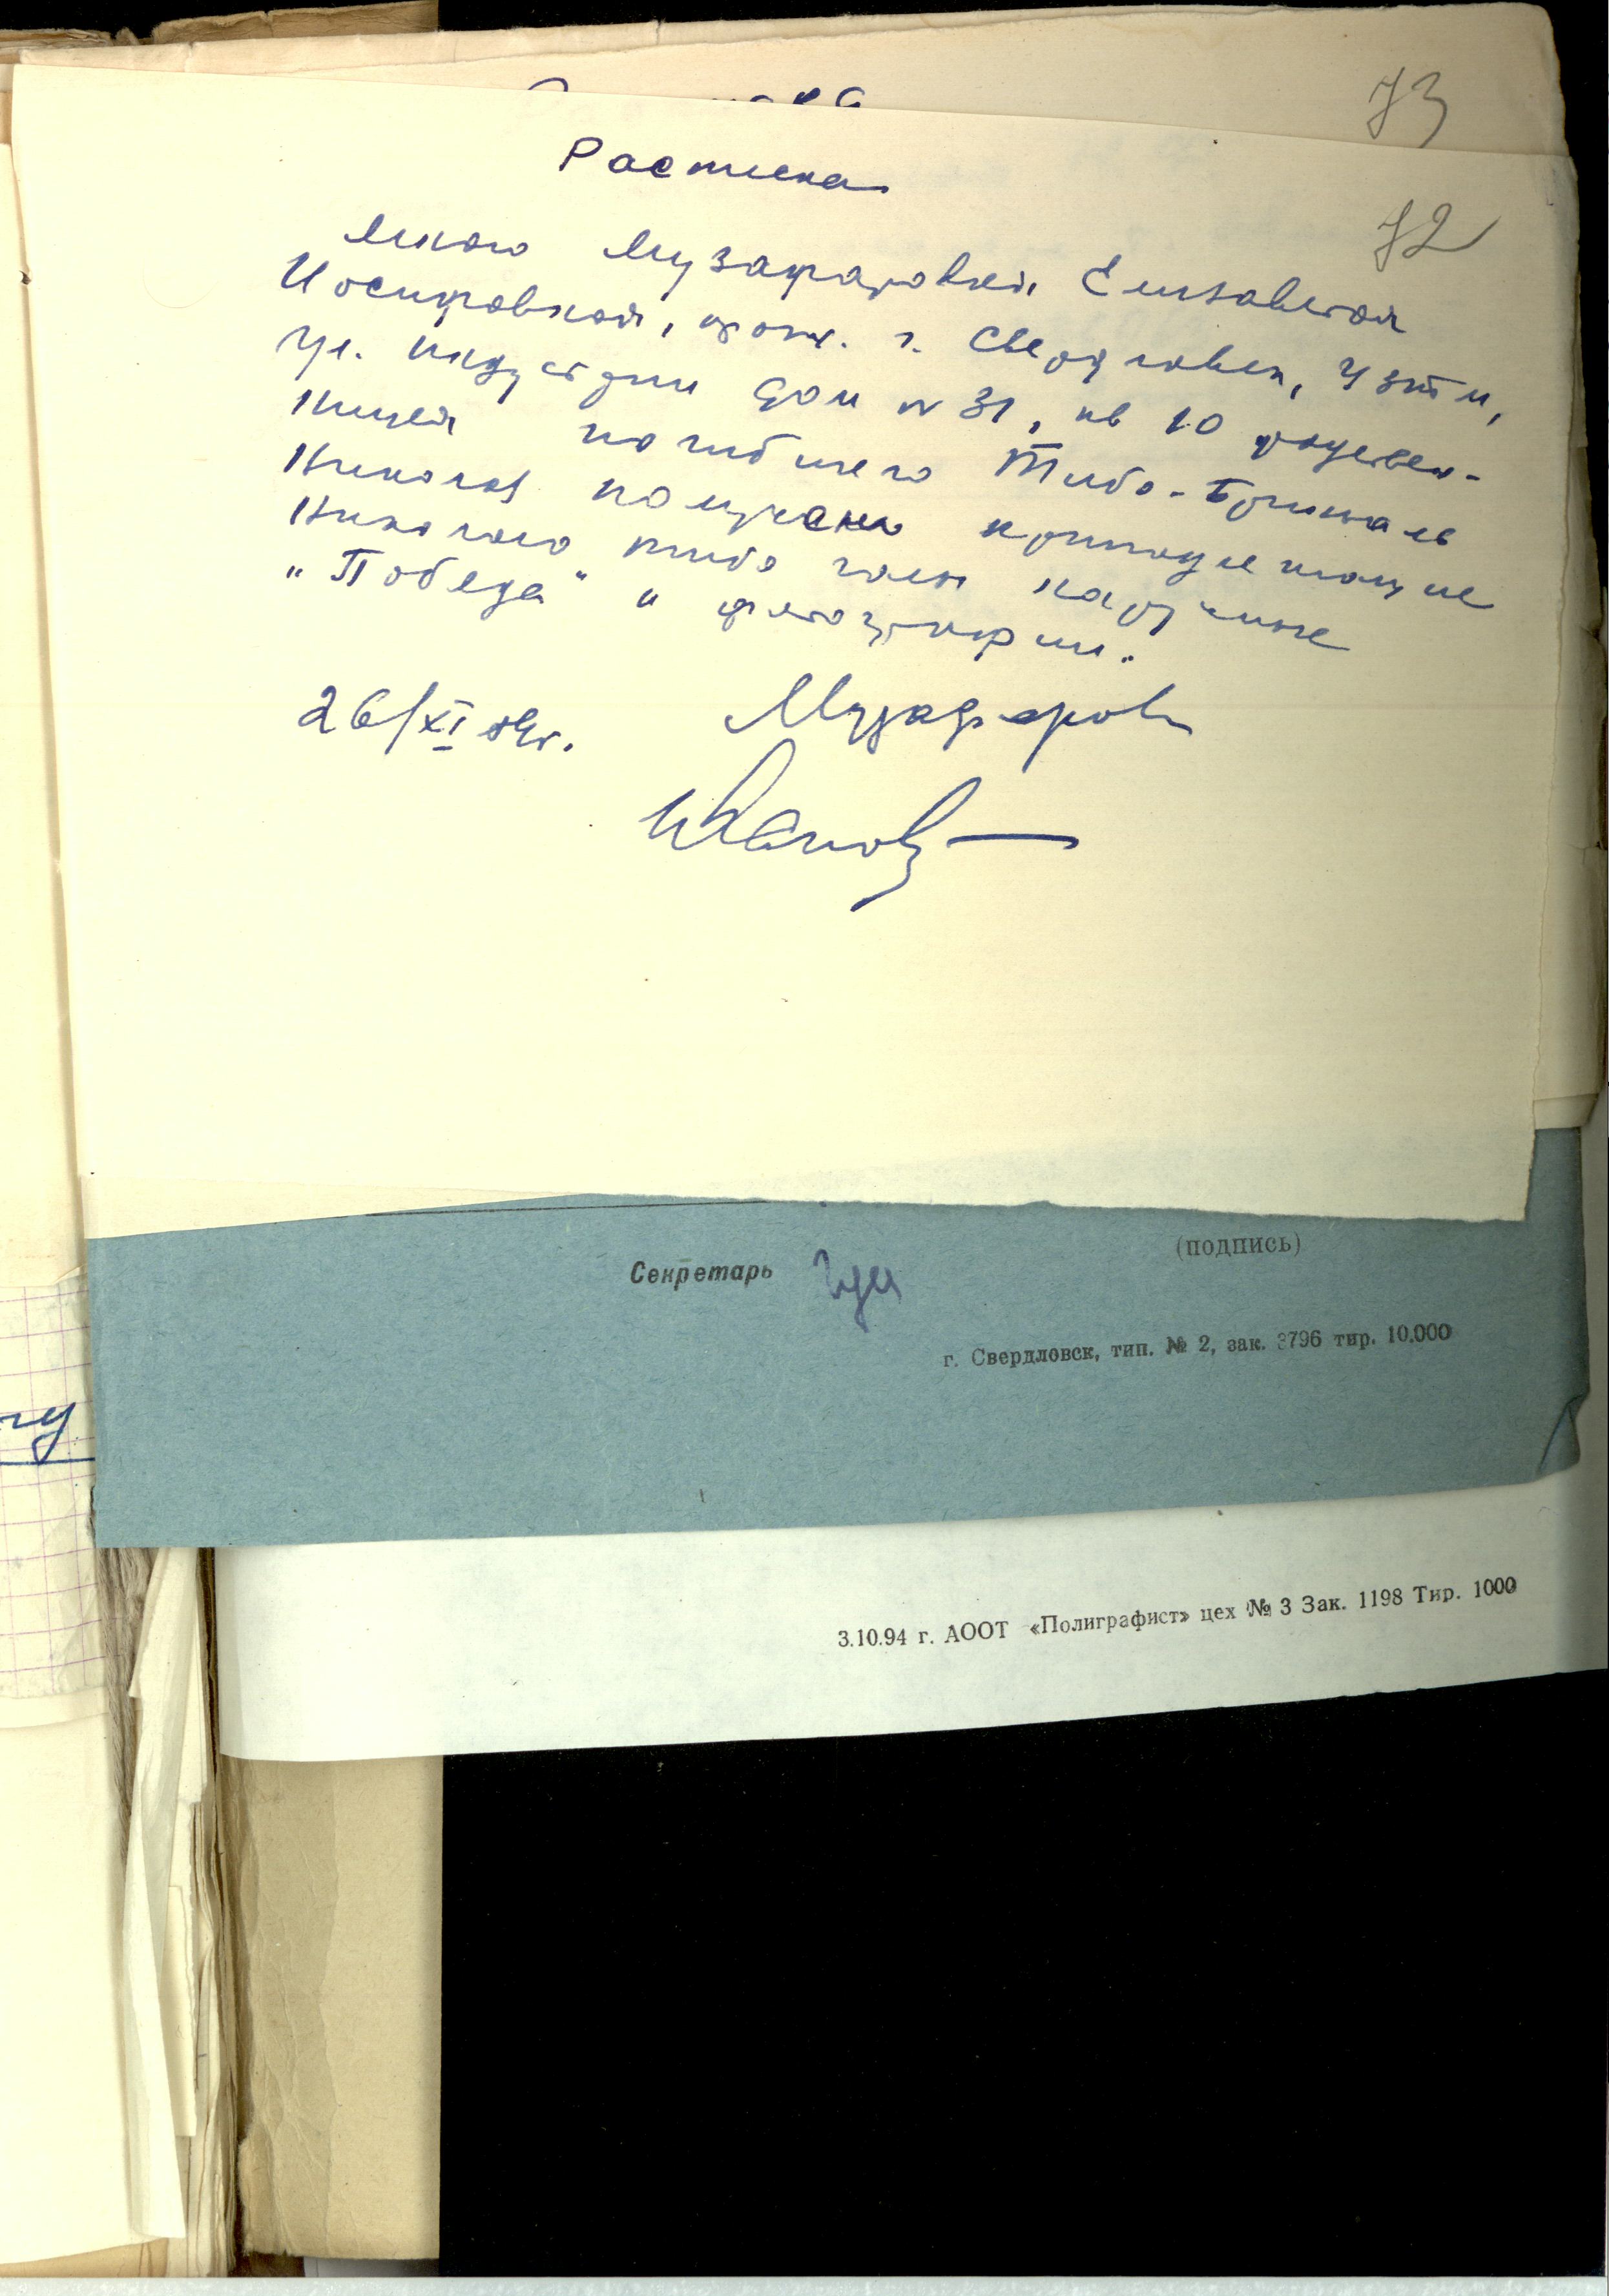 73
Расписка
72
Мною Музафаровой Елизаветой
Иосифовной, прож. г. Свердловск, УЗТМ,
ул. Индустрии дом № 31, кв 10 родствен-
ницей погибшего Тибо-Бриньоль
Николая получены принадлежащие
Николаю Тибо часы наручные
"Победа" и фотографии.
26/XI 59г. Музафаров
Иванов
(подпись)
Секретарь
г. Свердловск, тип. № 2, зак. 3796 тир. 10.000
гу
3.10.94 г. АООТ «Полиграфист» цех № 3 Зак. 1198 Тир. 1000